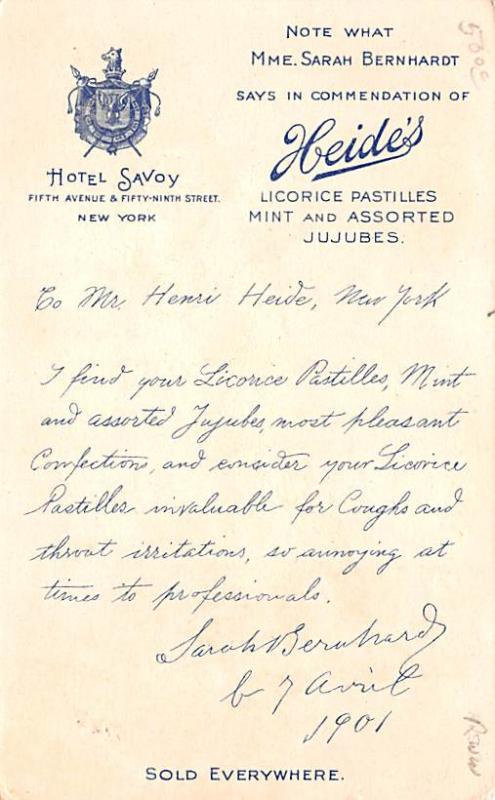 NOTE WHAT
MME. SARAH BERNHARDT
SAYS IN COMMENDATION OF
Heide's
LICORICE PASTILLES
MINT AND ASSORTED
JUJUBES.
HOTEL SAVOY
FIFTH AVENUE & FIFTY-NINTH STREET.
NEW YORK
To Mr. Henri Heide, New York
I find your Licorice Pastilles, Mint
and assorted Jujubes, most pleasant
Confections, and consider your Licorice
Pastilles invaluable for Coughs and
throat irritations, so annoying at
times to professionals.
Sarah Bernhardt
7 Avril
1901
SOLD EVERYWHERE.